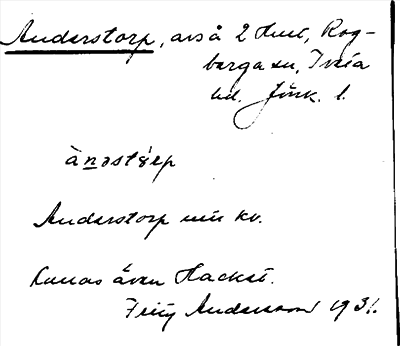 Anderstorp, avs å 2 Hult, Rog-
berga sn, Tveta
hd. Jönk. l.
ànəstórp
Anderstorp min kv.
kallas även Hacket.
Fritz Andersson 1931.